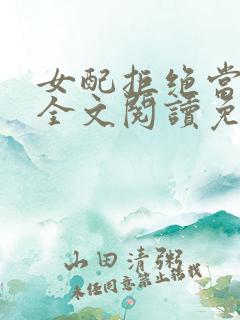 女配拒绝当
全文閱讀免
山田清粥
未经同意禁止转载